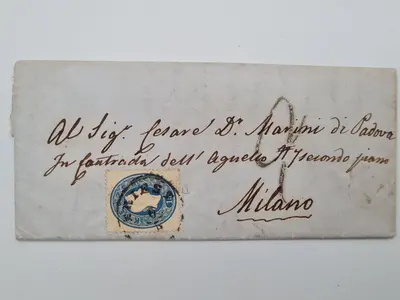 Al Sigr. Cesare Dr. Marini di Padova
In Contrada dell' Agnello secondo piano
Milano